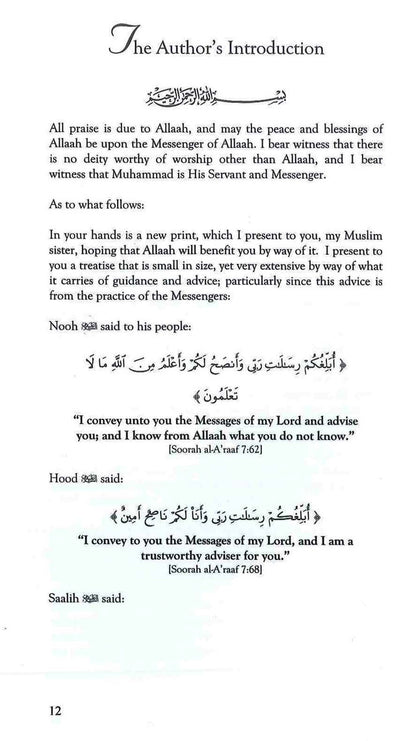 The Author's Introduction
بسم الله الرحمن الرحيم
All praise is due to Allaah, and may the peace and blessings of
Allaah be upon the Messenger of Allaah. I bear witness that there
is no deity worthy of worship other than Allaah, and I bear
witness that Muhammad is His Servant and Messenger.
As to what follows:
In your hands is a new print, which I present to you, my Muslim
sister, hoping that Allaah will benefit you by way of it. I present to
you a treatise that is small in size, yet very extensive by way of what
it carries of guidance and advice; particularly since this advice is
from the practice of the Messengers:
Nooh said to his people:
﴿ أُبَلِّغُكُمْ رِسَٰلَٰتِ رَبِّى وَأَنصَحُ لَكُمْ وَأَعْلَمُ مِنَ ٱللَّهِ مَا لَا
تَعْلَمُونَ ﴾
"I convey unto you the Messages of my Lord and advise
you; and I know from Allaah what you do not know."
[Soorah al-A'raaf 7:62]
Hood said:
﴿ أُبَلِّغُكُمْ رِسَٰلَٰتِ رَبِّى وَأَنَا۠ لَكُمْ نَاصِحٌ أَمِينٌ ﴾
"I convey to you the Messages of my Lord, and I am a
trustworthy adviser for you."
[Soorah al-A'raaf 7:68]
Saalih said:
12